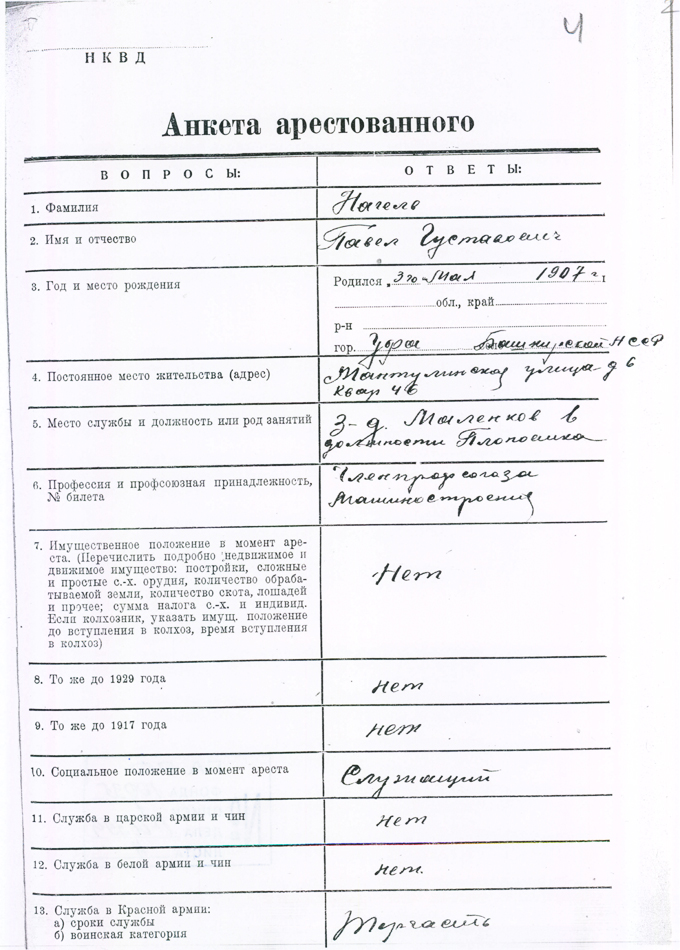 4
НКВД
Анкета арестованного
ВОПРОСЫ:
ОТВЕТЫ:
1. Фамилия
Нагель
2. Имя и отчество
Павел Густавович
3. Год и место рождения
Родился 3го Мая 1907 г.
обл., край
р-н
гор. Уфа Башкирской АССР
4. Постоянное место жительства (адрес)
Мантулинская улица д 6
Квар 46
5. Место службы и должность или род занятий
З-д. в
должности
6. Профессия и профсоюзная принадлежность,
№ билета
Член профсоюза
Машиностроения
7. Имущественное положение в момент аре-
ста. (Перечислить подробно недвижимое и
движимое имущество: постройки, сложные
и простые с.-х. орудия, количество обраба-
тываемой земли, количество скота, лошадей
и прочее; сумма налога с.-х. и индивид.
Если колхозник, указать имущ. положение
до вступления в колхоз, время вступления
в колхоз)
Нет
8. То же до 1929 года
нет
9. То же до 1917 года
нет
10. Социальное положение в момент ареста
Служащий
11. Служба в царской армии и чин
нет
12. Служба в белой армии и чин
нет.
13. Служба в Красной армии:
а) сроки службы
б) воинская категория